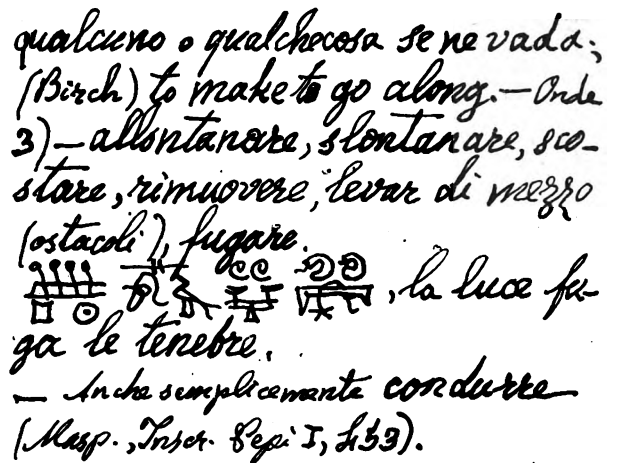 qualcuno o qualchecosa se ne vada;
(Birch) to make to go along. — Onde
3) — allontanare, slontanare, sco-
stare, rimuovere, levar di mezzo
(ostacoli), fugare.
, la luce fu-
ga le tenebre.
— Anche semplicemente condurre
(Masp., Inscr. Pepi I, 453).